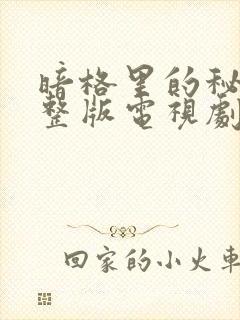 暗格里的秘
整版電視劇
回家的小火車